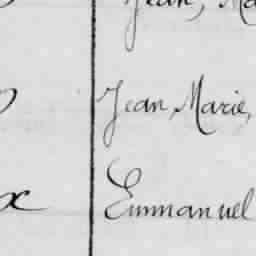 Jean, Ma
Jean, Marie,
x Emmanuel